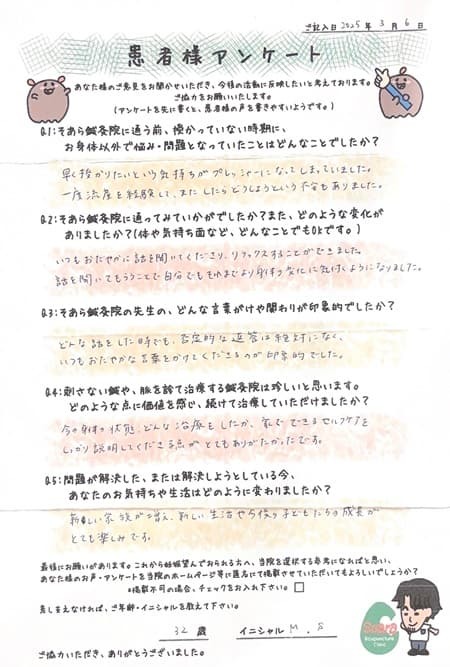 ご記入日2025年3月6日
患者様アンケート
あなた様のご意見をお聞かせいただき、今後の活動に反映したいと考えております。
ご協力をお願いいたします。
(アンケートを先に書くと、患者様の声を書きやすいようです。)
Q.1:そあら鍼灸院に通う前、授かっていない時期に、
お身体以外で悩み・問題となっていたことはどんなことでしたか?
早く授かりたいという気持ちがプレッシャーになってしまっていました。
一度流産を経験して、またしたらどうしようという不安もありました。
Q.2:そあら鍼灸院に通ってみていかがでしたか?また、どのような変化が
ありましたか?(体や気持ち面など、どんなことでもOKです。)
いつもおだやかに話を聞いてくださり、リラックスすることができました。
話を聞いてもらうことで自分でもそれまでより身体の変化に気付くようになりました。
Q.3:そあら鍼灸院の先生の、どんな言葉がけや関わりが印象的でしたか?
どんな話をした時でも、否定的な返答は絶対になく、
いつもおだやかな言葉をかけてくださるのが印象的でした。
Q.4:刺さない鍼や、脈を診て治療する鍼灸院は珍しいと思います。
どのような点に価値を感じ、続けて治療していただけましたか?
今の身体の状態、どんな治療をしたか、家でできるセルフケアを
しっかり説明してくださる点がとてもありがたかったです。
Q.5:問題が解決した、または解決しようとしている今、
あなたのお気持ちや生活はどのように変わりましたか?
新しい家族が増え、新しい生活や今後の子どもたちの成長が
とても楽しみです。
最後にお願いがあります。これから妊娠望んでおられる方へ、当院を選択する参考になればと思い、
あなた様のお声・アンケートを当院のホームページ等に匿名にて掲載させていただいてもよろしいでしょうか?
*掲載不可の場合、チェックをお入れ下さい。
差しまえなければ、ご年齢・イニシャルを教えて下さい。
32歳 イニシャル M.S
ご協力いただき、ありがとうございました。
Soara
Acupuncture
Clinic